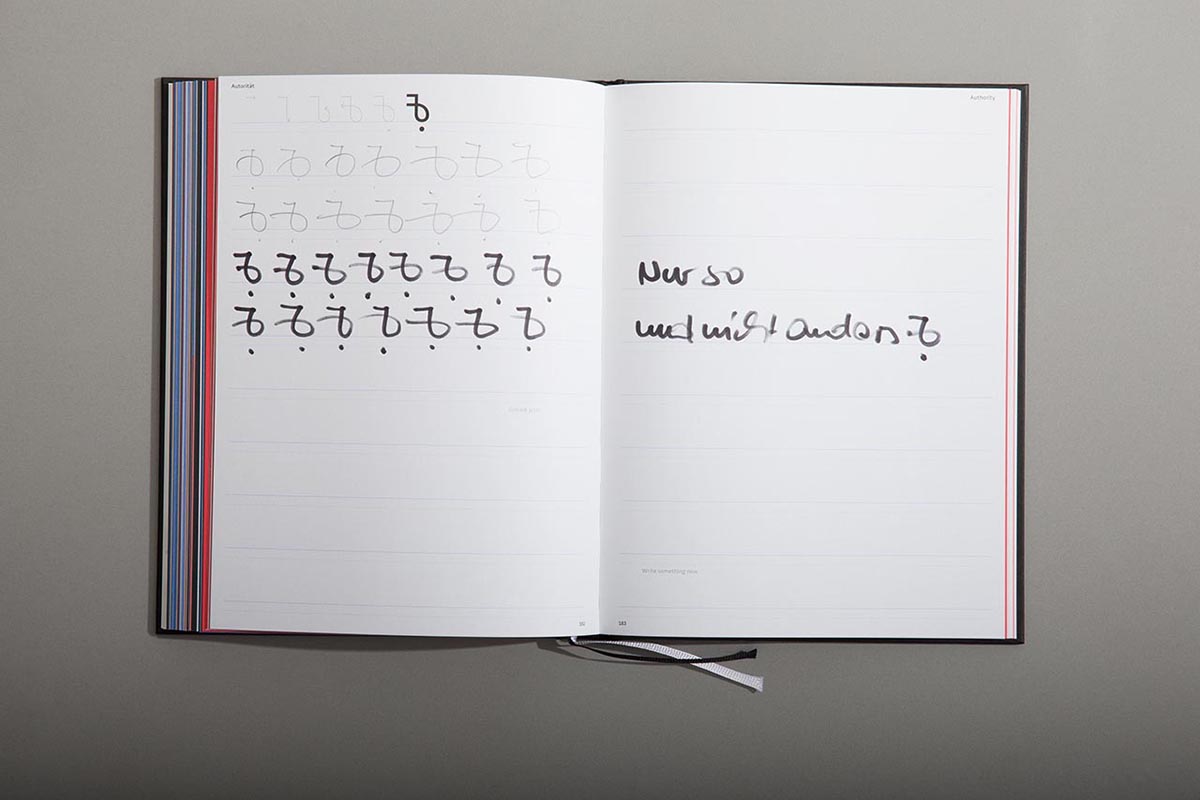 Autorität
Authority
Nur so
und nicht anders
Write something now
182
183